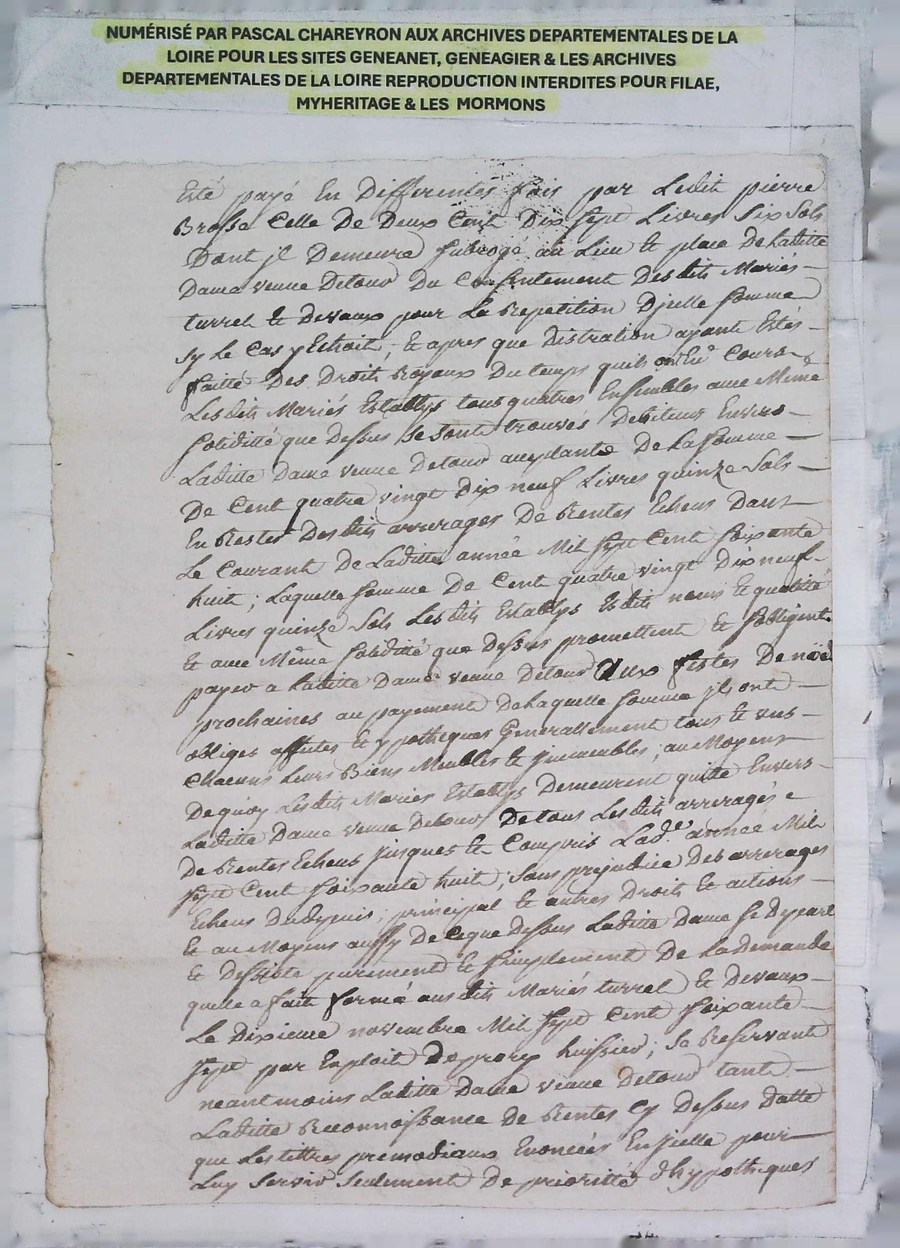 NUMÉRISÉ PAR PASCAL CHAREYRON AUX ARCHIVES DEPARTEMENTALES DE LA
LOIRE POUR LES SITES GENEANET, GENEAGIER & LES ARCHIVES
DEPARTEMENTALES DE LA LOIRE REPRODUCTION INTERDITES POUR FILAE,
MYHERITAGE & LES MORMONS
Esté payé En Differentes fois par Ledit pierre
Brosse Celle De Deux Cent Dix sept Livres Six Sols
Dont jl Demeure subrogé au Lieu et place De Laditte
Dame veuve Detour Du Consentement Desdits Mariés
turrel & Devaux pour La Repetition Djcelle somme
sy Le Cas y Echoit, Et apres que distration ayant Estés
faitte Des Droits Royaux Du temps quils ont Eu Cours
Lesdits Mariés Establys tous quatres Ensembles avec Même
soliditté que Dessus se sont trouvés Debiteurs Envers
Laditte Dame veuve Detour De La somme
De Cent quatre vingt Dix neuf Livres quinze Sols
En Restes Desdits arrerages De Rentes Echeus Dans
Le Courant De Laditte année Mil sept Cent soixante
huit ; Laquelle somme De Cent quatre vingt Dix neuf
Livres quinze Sols Lesdits Establys Esdits noms et qualités
Et avec Même soliditté que Dessus promettent Et sobligent
payer a Laditte Dame veuve Detour Aux festes De noël
prochaines au payement De Laquelle somme jls ont
obligés affectés Et ypothequés Generallement tous & uns
Chacuns Leurs Biens Meubles & jmmeubles, au Moyens
De quoy Lesdits Mariés Establys Demeurent quitte Envers
Laditte Dame veuve Detour De tous Lesdits arreragés
De Rentes Echeus jusques & Compris Lad.e année Mil
sept Cent soixante huit, sans prejudice Des arrerages
Echeus Dudepuis, principal & autres Droits Et actions
Et au Moyens aussy De Ceque Dessus Laditte Dame se Depart
Et Dessiste purement Et simplement De La Demande
quelle a fait formé ausdits Mariés turrel Et Devaux
Le Dixieme novembre Mil sept Cent soixante
sept par Exploit De huissier ; Se Reservant
neantmoins Laditte Dame veuve Detour tant
Laditte Reconnoissance De Rentes Cy Dessus Datte
que Les tittres primodiaux Enoncées En jcelle pour
Luy servir seulement De priorittés dhypotheques